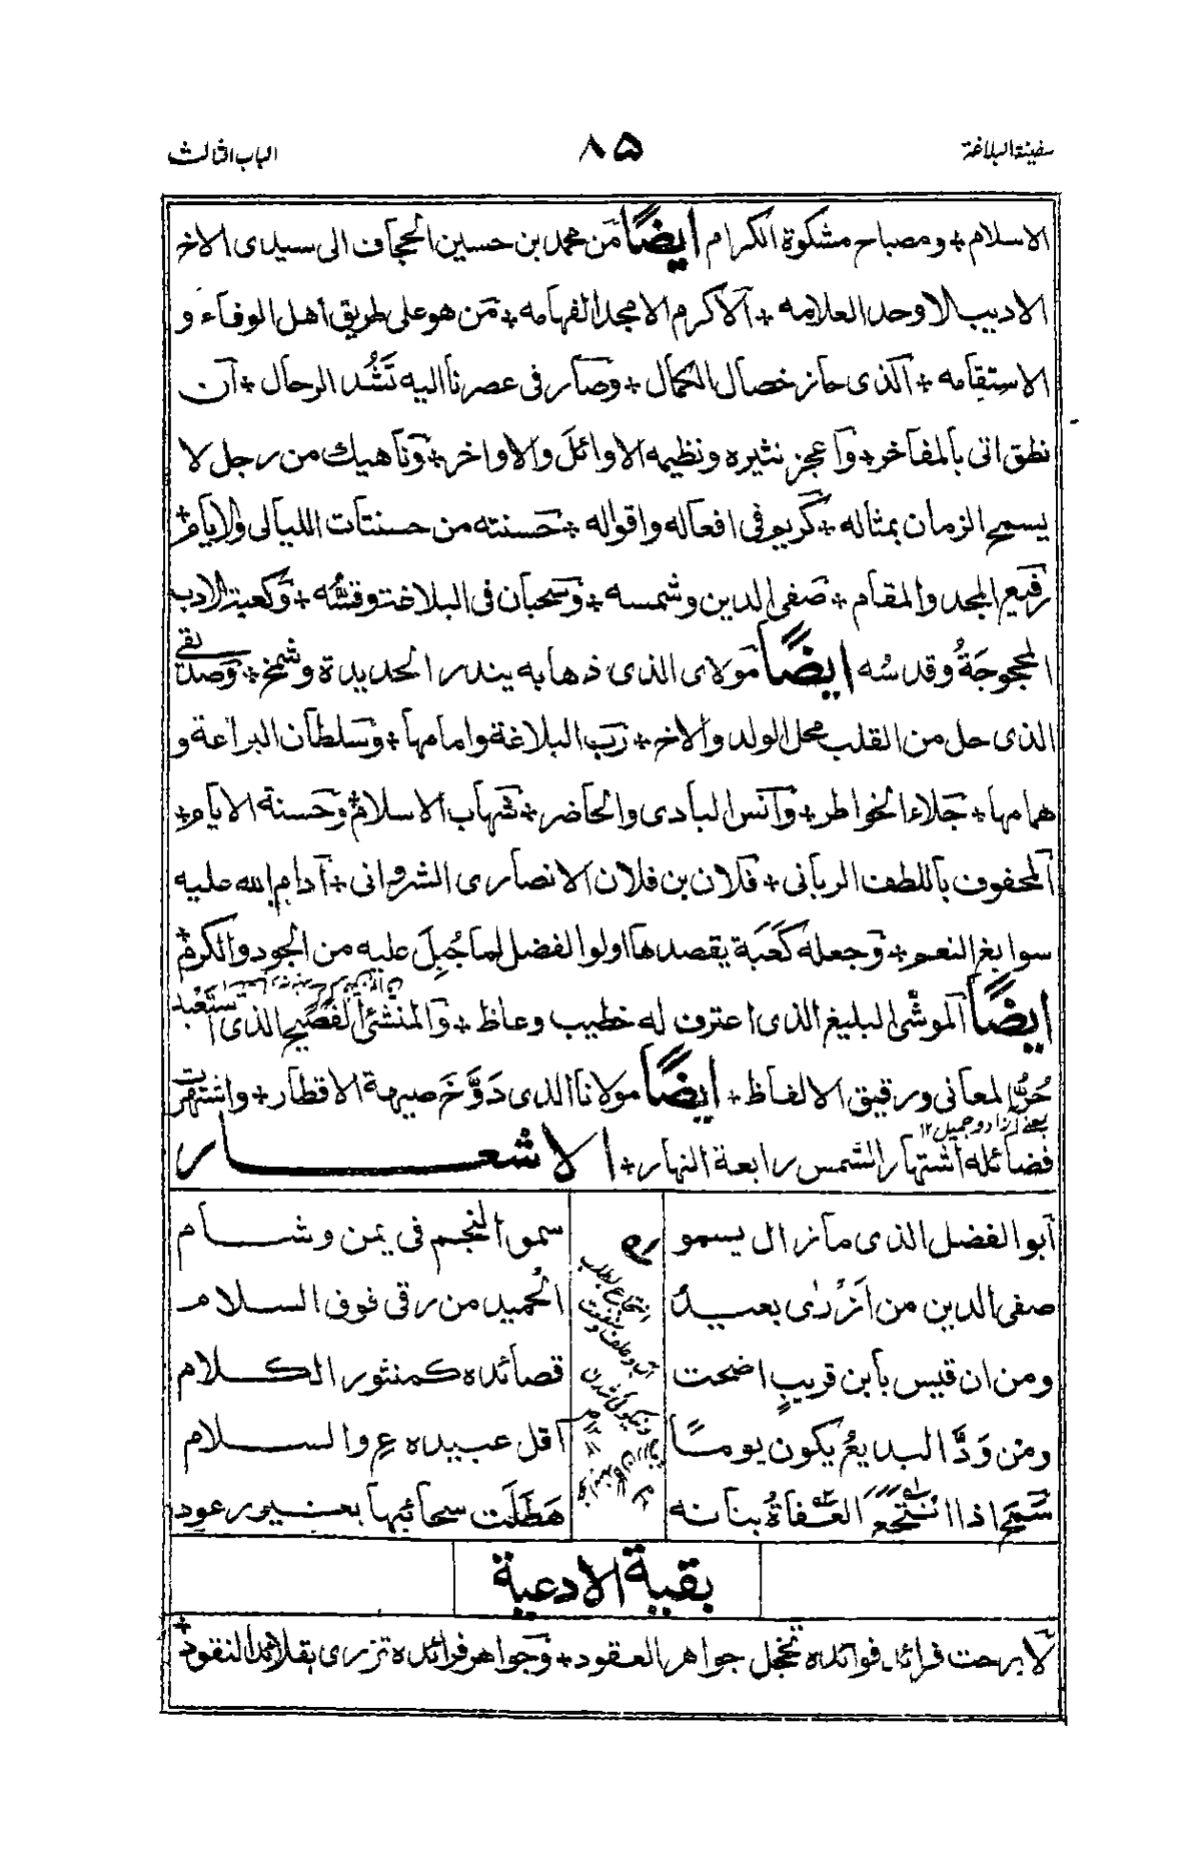 سفينة البلاغة
٨٥
الباب الثالث
الاسلام + ومصباح مشكوة الكرام ايضًا من محمد بن حسين الحجاف الى سيدى الاخ
الاديب الاوحد العلامه + الاكرم الامجد الفهامه + من هو على طريق أهل الوفاء و
الاستقامه + الذى حاز خصال الكمال + وصار فى عصرنا اليه تَشُد الرحال + ان
نطق اتى بالمفاخر + واعجز نثيره ونظيمه الاوائل والاواخر + وناهيك من رجل لا
يسمح الزمان بمثاله + كريم فى افعاله واقواله + حسنته من حسنتات الليالى والايام +
رفيع المجد والمقام + صفى الدين وشمسه + وسحبان فى البلاغة وقسُّه + وكعبة الادب
المحجوجَةُ وقدسُه ايضًا مولاى الذى ذهابه يندر الحديدة وشمخ + وصديقى
الذى حل من القلب محل الولد والاخ + رب البلاغة وامامها + وسلطان البراعة و
همامها + جلاء الخواطر + وآنس البادى والحاضر + شهاب الاسلام + وحسنة الايام +
المحفوف باللطف الربانى + فلان بن فلان الانصارى الشروانى + ادام الله عليه
سوابغ النعم + وجعله كَعَبَة يقصدها اولوا الفضل لما جُبِلَ عليه من الجود والكرم +
ايضًا الموشّى البليغ الذى اعترف له خطيب وعاظ + والمنشئ الفصيح الذى استعبد
حُرُّ المعانى ورقيق الالفاظ + ايضًا مولانا الذى دَوَّخَ صيهة الاقطار + واشتهرت
يعنے آزاد و جميل ١٢
فضائله اشتهار الشمس رابعة النهار + الاشعار
أبو الفضل الذى مازال يسمو سمو النجم فى يمن وشام
صفى الدين من ازرى بعيد الحميد من رقى فوق السلام
ومن ان قيس بابن قريبٍ اضحت قصائده كمنثور الكلام
ومن وَدَّ البديعُ يكون يومًا اقل عبيده ع والسلام
سَمَحٌ اذا انتجع العفاةُ بنانه هَطَلَت سحائبها بغير رعود
بقية الادعية
لا برحت فرائد فوائده تخجل جواهر العقود + وجواهر فرائده تزرى بقلائد النقود +